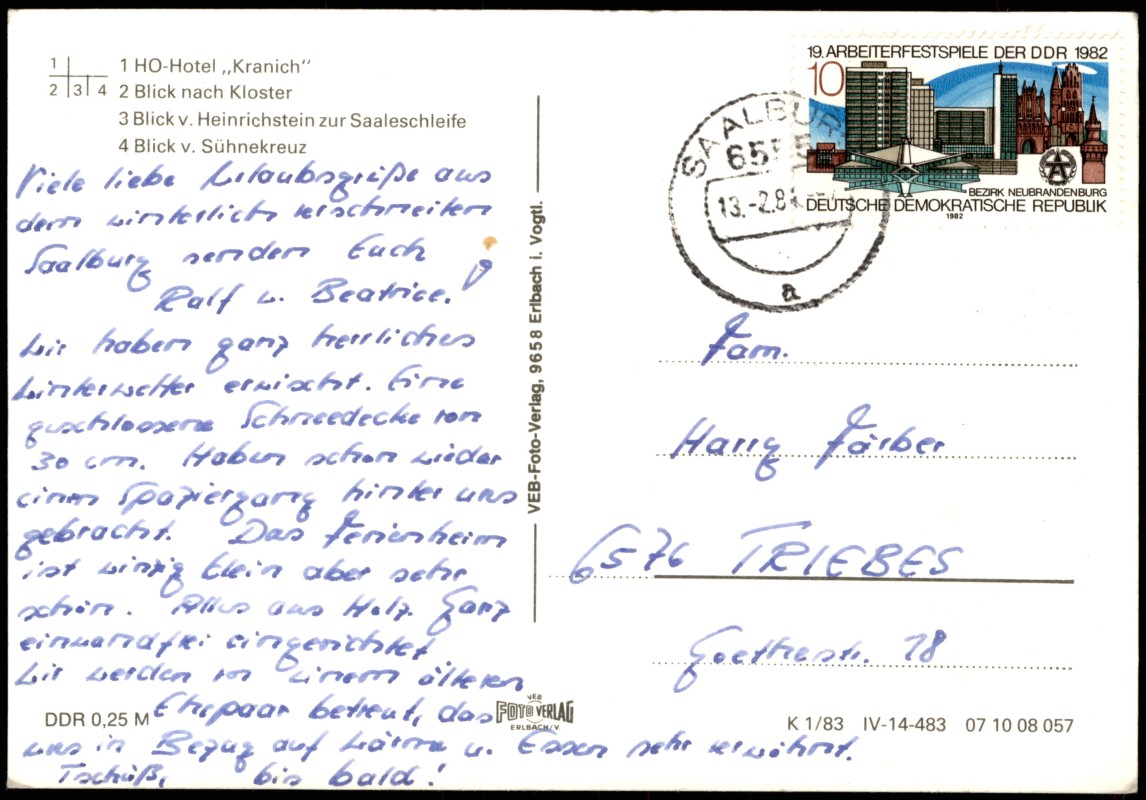 1 HO-Hotel „Kranich"
2 Blick nach Kloster
3 Blick v. Heinrichstein zur Saaleschleife
4 Blick v. Sühnekreuz
1
2 3 4
Viele liebe Urlaubsgrüße aus
dem winterlich verschneiten
Saalburg senden Euch
Ralf u. Beatrice!
Wir haben ganz herrliches
Winterwetter erwischt. Eine
geschlossene Schneedecke von
30 cm. Haben schon wieder
einen Spaziergang hinter uns
gebracht. Das Ferienheim
ist winzig klein aber sehr
schön. Alles aus Holz. Ganz
einwandfrei eingerichtet
Wir werden von einem älteren
Ehepaar betreut, das
uns in Bezug auf Wärme u. Essen sehr verwöhnt.
Tschüß, bis bald!
DDR 0,25 M
VEB-Foto-Verlag, 9658 Erlbach i. Vogtl.
VEB
FOTO VERLAG
ERLBACH/V.
19. ARBEITERFESTSPIELE DER DDR 1982
10
BEZIRK NEUBRANDENBURG
DEUTSCHE DEMOKRATISCHE REPUBLIK
1982
SAALBURG
655
13.-2.84
a
Fam.
Harry Färber
6576 TRIEBES
Goethestr. 18
K 1/83 IV-14-483 07 10 08 057